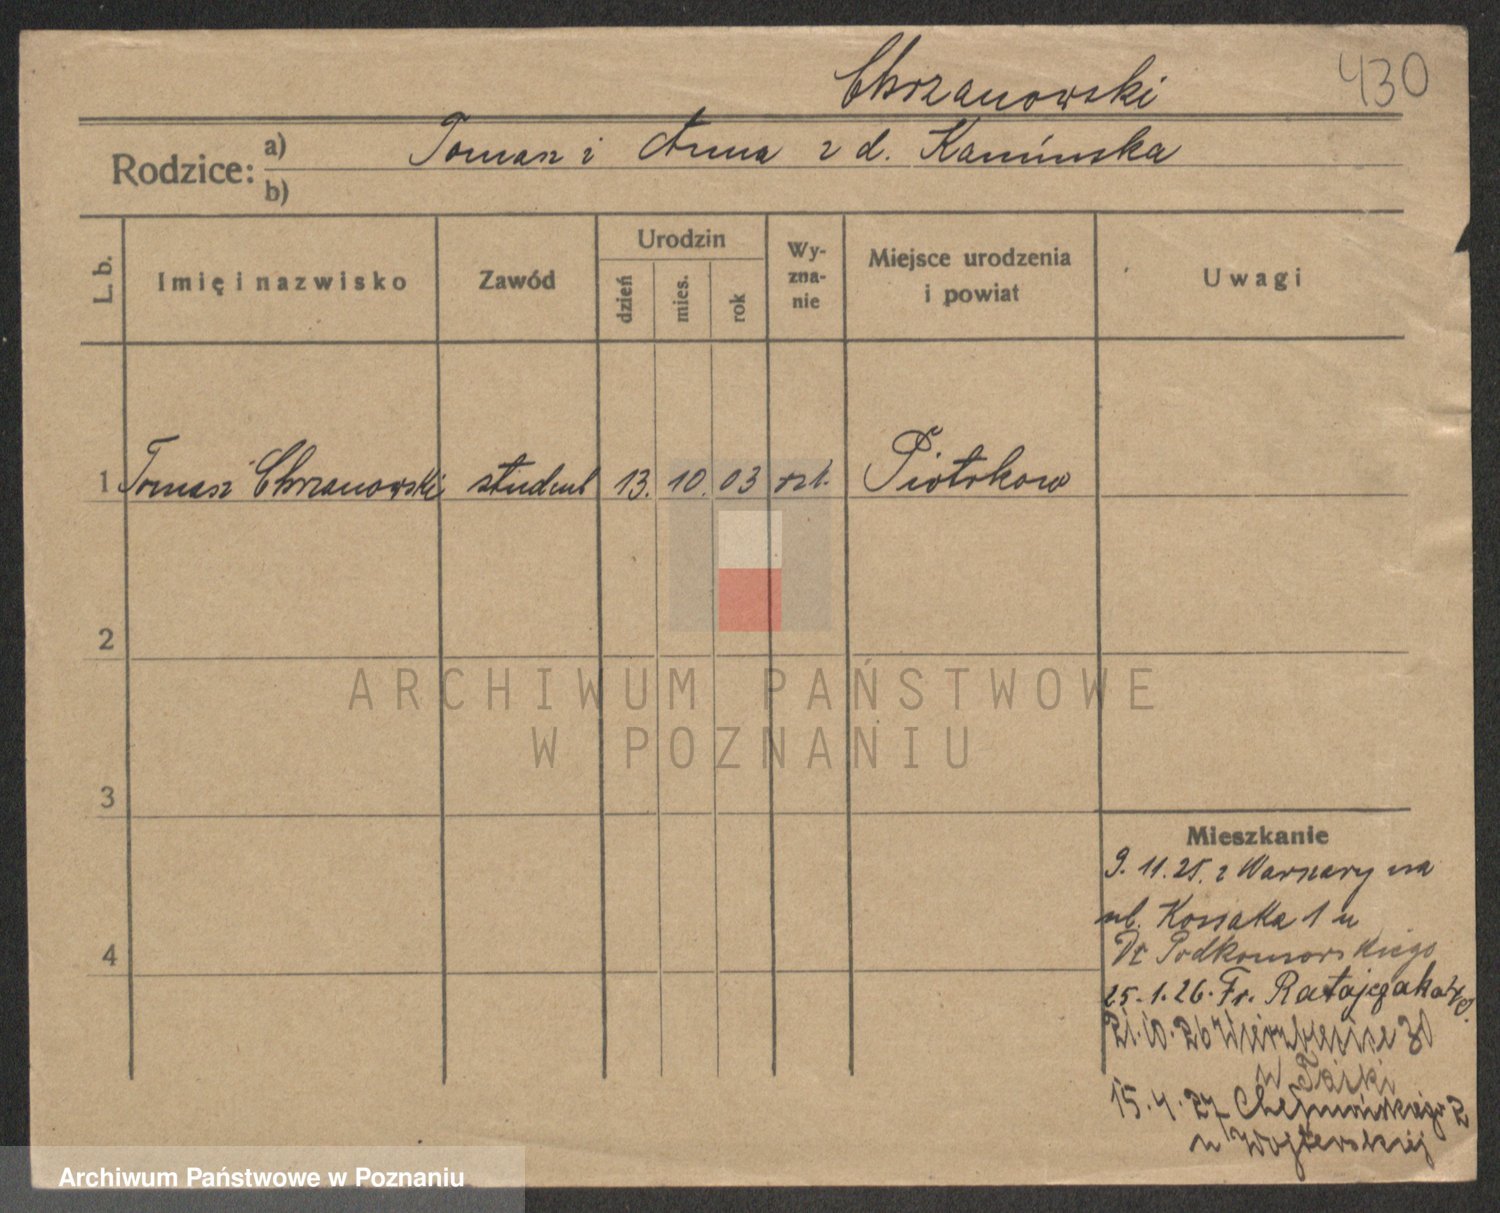 Chrzanowski
430
Rodzice: a) Tomasz i Anna z d. Kamińska
b)
L. b.
Imię i nazwisko
Zawód
Urodzin
dzień
mies.
rok
Wy-
zna-
nie
Miejsce urodzenia
i powiat
Uwagi
1 Tomasz Chrzanowski student 13. 10. 03 rzk. Piotrkow
2
ARCHIWUM PAŃSTWOWE
W POZNANIU
3
Mieszkanie
9. 11. 25. z Warszawy na
ul. Kossaka 1 u
Dr Podkomorskiego
4
25. 1. 26. Fr. Ratajczaka
21. 10. 26 Wierzbięcice 30
u
15. 4. 27 Chełmońskiego 2
u Wojterskiej
Archiwum Państwowe w Poznaniu